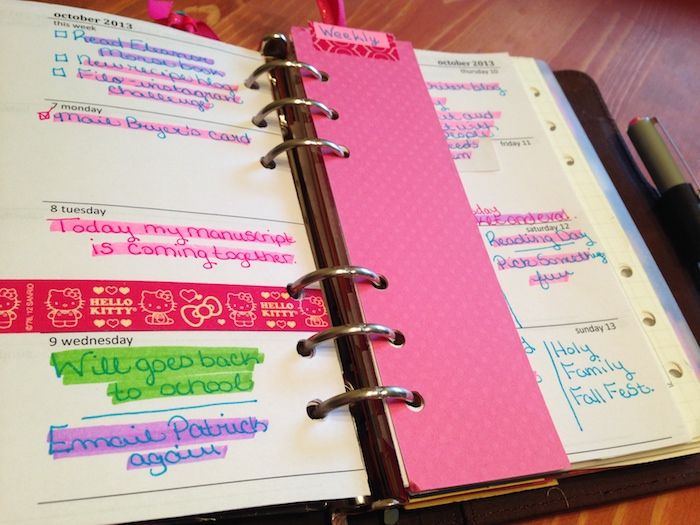 october 2013
this week
Read Eleanor
Morse book
New recipe blog
Filo-instagram
challenge
7 monday
Mail Bryer's card
8 tuesday
Today my manuscript
is coming together.
©'76, '12 SANRIO
HELLO
KITTY
HELLO
KITTY
9 wednesday
Will goes back
to school
Email Patrick
again
Weekly
october 2013
thursday 10
blog
and
with
people
friday 11
saturday 12
Reading Day
Pick Something
fun
sunday 13
Holy
Family
Fall Fest.